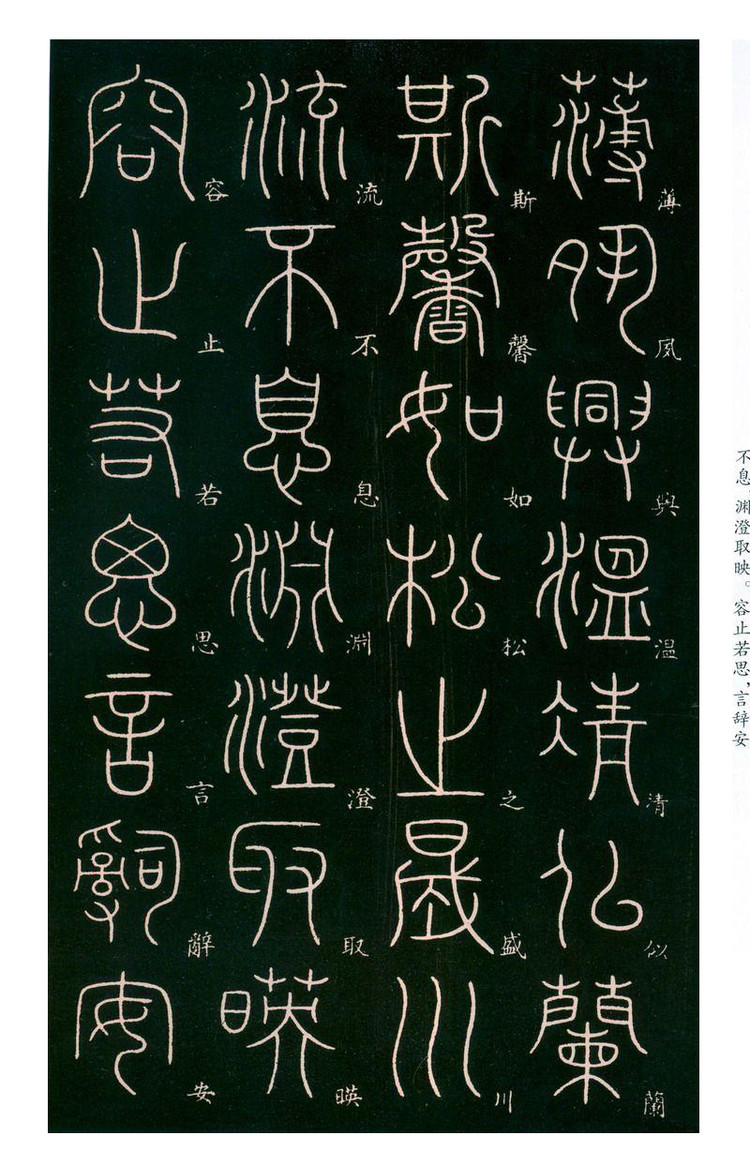 不息 渊澄取映。容止若思,言辞安
薄夙興温清似蘭
斯馨如松之盛川
流不息淵澄取暎
容止若思言辭安